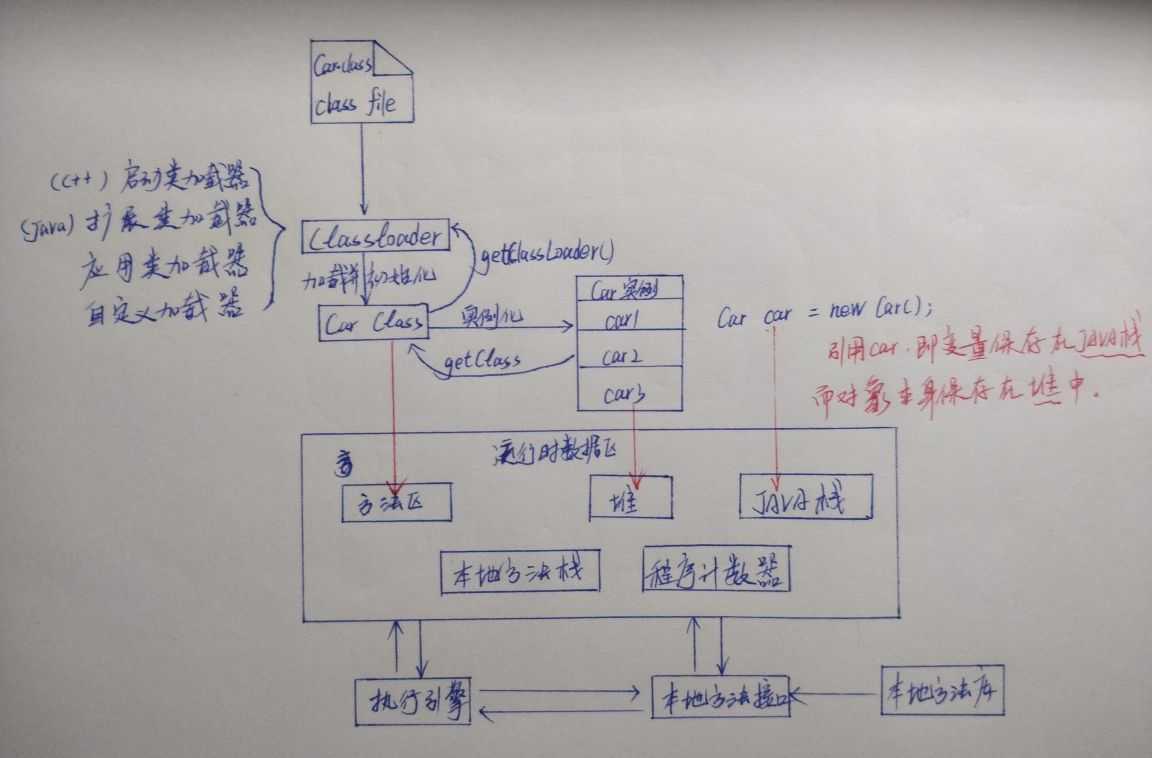 Car.class
class file
(C++) 启动类加载器
(Java) 扩展类加载器
应用类加载器
自定义加载器
ClassLoader
getClassLoader()
加载并初始化
Car Class
实例化
getClass
Car 实例
car1
car2
car3
Car car = new Car();
引用car.即变量保存在JAVA栈
而对象本身保存在堆中.
运行时数据区
方法区
堆
JAVA栈
本地方法栈
程序计数器
执行引擎
本地方法接口
本地方法库